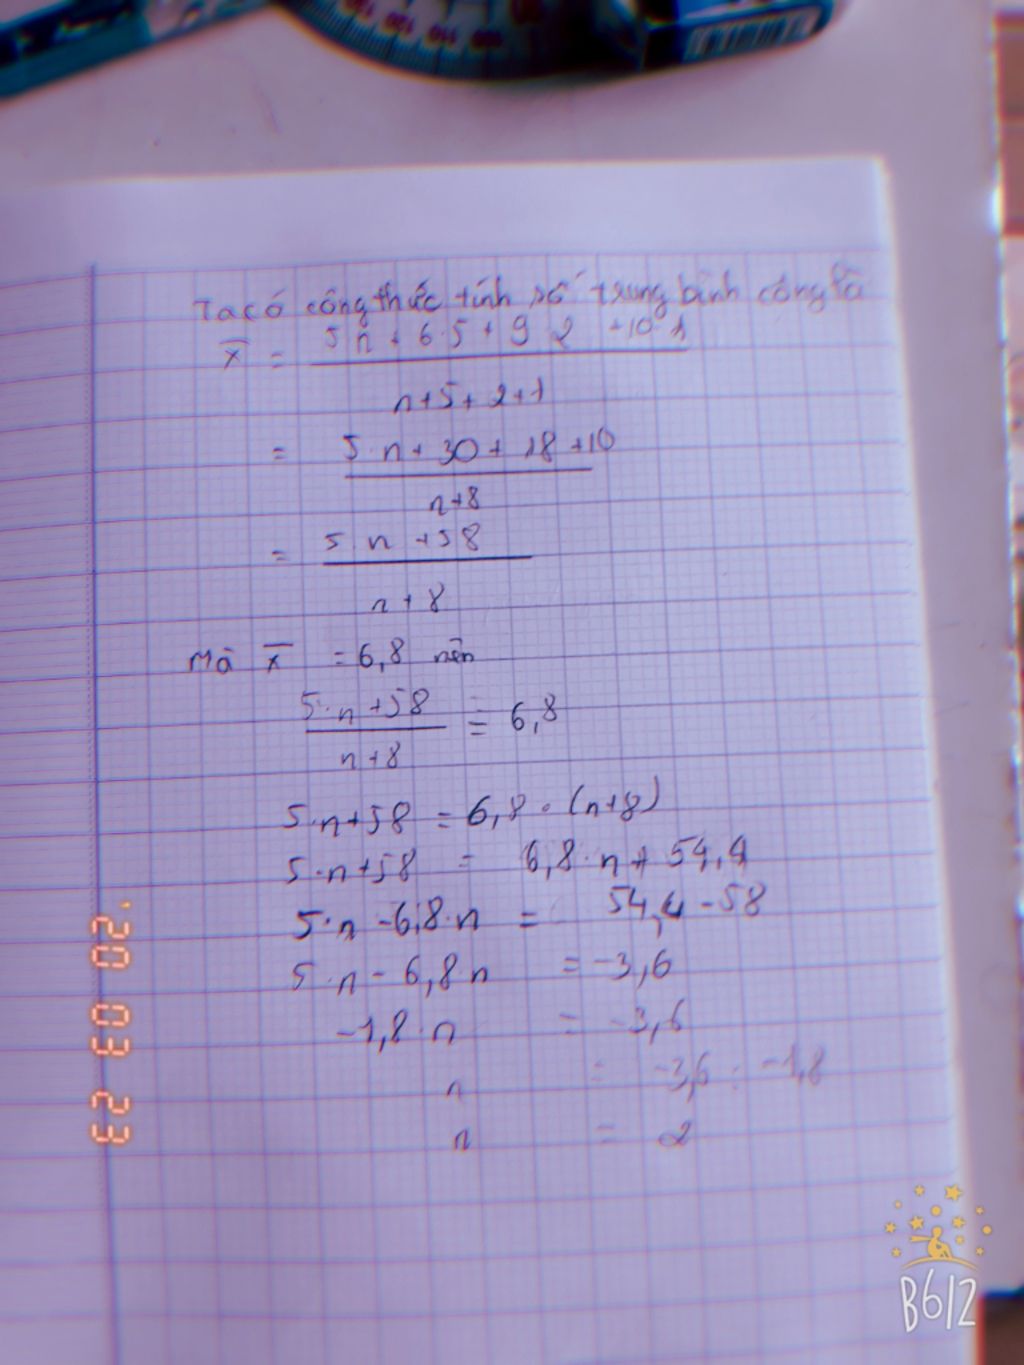 Ta có công thức tính số trung bình cộng là
x̅ = (5 n + 6.5 + 9 2 + 10 1) / (n+5+2+1)
= (5. n + 30 + 18 + 10) / (n+8)
= (5. n + 58) / (n + 8)
Mà x̅ = 6,8 nên
(5.n + 58) / (n+8) = 6,8
5.n+58 = 6,8.(n+8)
5.n+58 = 6,8.n + 54,4
5.n - 6,8.n = 54,4 - 58
5.n - 6,8n = -3,6
-1,8.n = -3,6
n = -3,6 : -1,8
n = 2
'20 03 23
B612